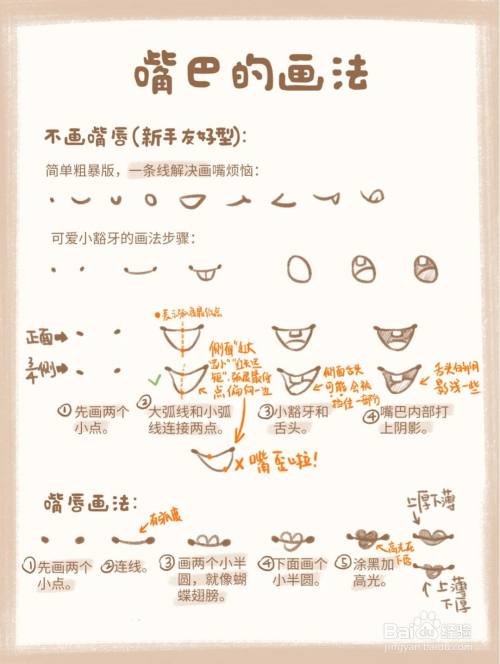 嘴巴的画法
不画嘴唇(新手友好型):
简单粗暴版，一条线解决画嘴烦恼:
可爱小豁牙的画法步骤:
正面→
3/4侧→
侧面"近大
远小"
点偏向一边
侧面舌头
可能会被
挡住一部分
舌头的阴
影浅一些
①先画两个
小点。
②大弧线和小弧
线连接两点。
③小豁牙和
舌头。
④嘴巴内部打
上阴影。
×嘴歪啦!
嘴唇画法:
有弧度
上厚下薄
①先画两个
小点。
②连线。
③画两个小半
圆，就像蝴
蝶翅膀。
④下面画个
小半圆。
⑤涂黑加
高光。
高光在
下唇
上薄
下厚
Baidu经验
jingyan.baidu.com